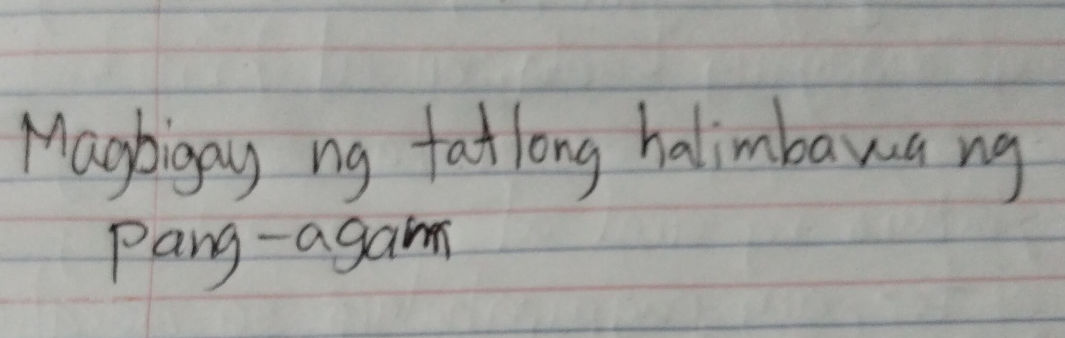 Magbigay ng tatlong halimbawa ng
pang-agam